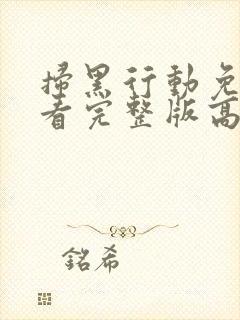 掃黑行動免
看完整版高
銘希